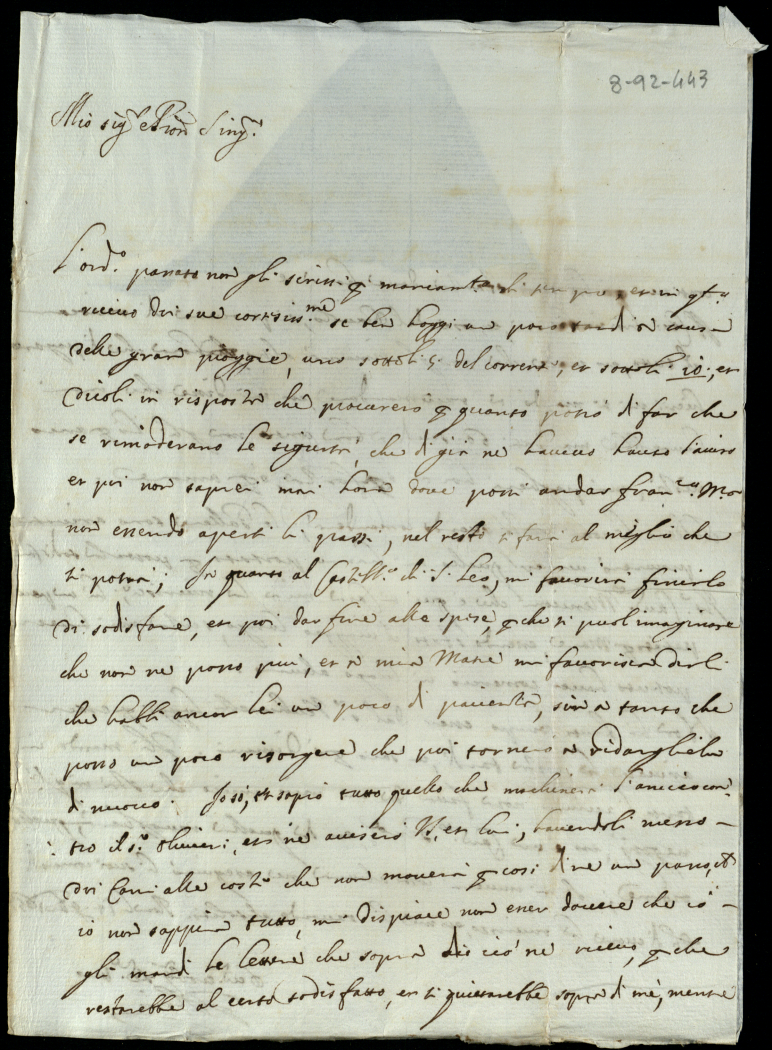 8-92-443
Mio sig.r e Pron Sing.r
L'ord.o passato non gli scrissi p mancam.to di tempo, et in q.to
ricevo dui sue cortesiss.me se ben hoggi un poco tardi a causa
delle gran pioggie, una sotto li 5 del corrente, et sotto li 10, et
dicoli in risposta che procurerò p quanto posso di far che
se rimoderano le sigurtà, che di già ne havevo hauto l'aviso
et poi non saprei mai hora dove possi andar Fran.co M.a
non essendo aperti li passi, nel resto si farà al meglio che
si potrà; In quanto al Castell.o di S. Leo, mi favorirà finirlo
di sodisfare, et poi dar fine alle spese, p che si puol imaginare
che non ne posso più, et a mia Matre mi favorisca dirli
che habbi ancor lei un poco di pacienza, sin a tanto che
posso un poco risorgere che poi tornerò a ridarglielo
di nuovo. Io sò, et saprò tutto quello che machinerà l'amico con
tro il s.r Olivieri, et ne aviserò V.S. et lui, havendoli messo
dui Cani alle coste che non moverà p così dire un passo, ch
io non sappia tutto, mi dispiace non esser dovere che io
gli mandi le lettere che sopra di ciò ne ricevo, p che
restarebbe al certo sodisfatto, et si quietarebbe sopra di me, mentre